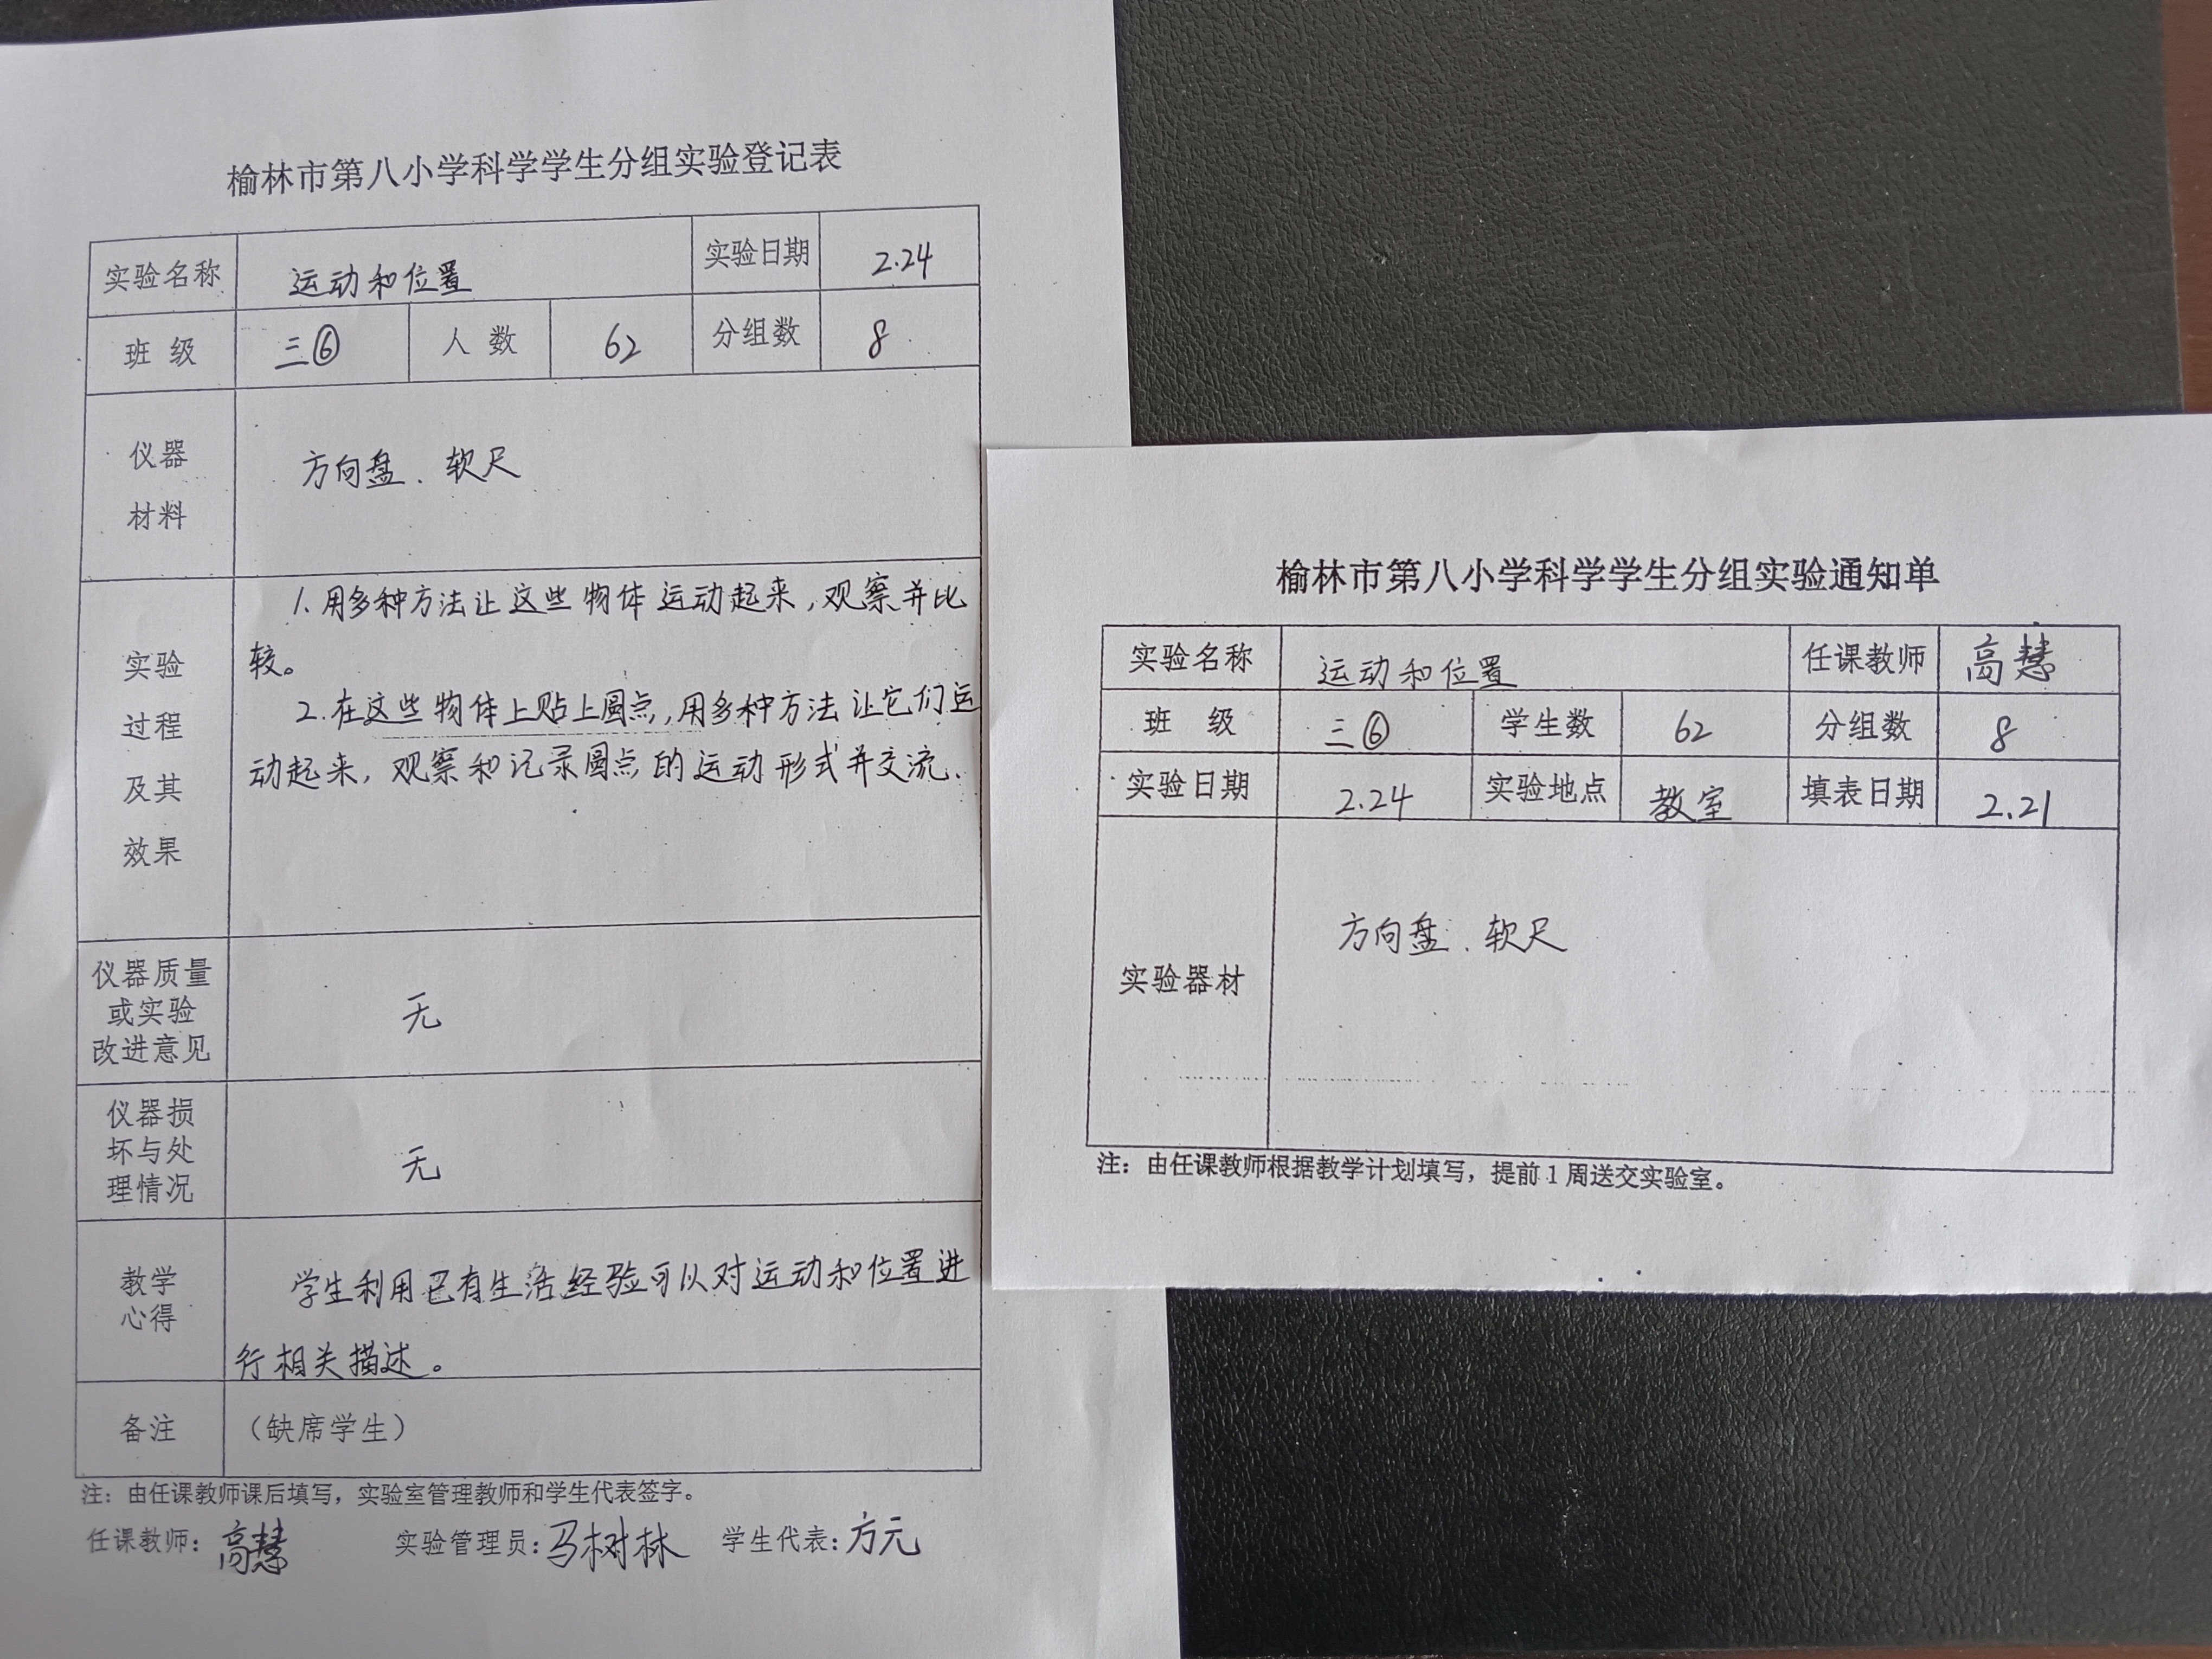 榆林市第八小学科学学生分组实验登记表
实验名称 运动和位置 实验日期 2.24
班 级 三⑥ 人 数 62 分组数 8
仪器
材料
方向盘、软尺
实验
过程
及其
效果
1.用多种方法让这些物体运动起来,观察并比
较。
2.在这些物体上贴上圆点,用多种方法让它们运
动起来,观察和记录圆点的运动形式并交流.
仪器质量
或实验
改进意见
无
仪器损
坏与处
理情况
无
教学
心得
学生利用已有生活经验可以对运动和位置进
行相关描述。
备注 (缺席学生)
注：由任课教师课后填写，实验室管理教师和学生代表签字。
任课教师：高慧 实验管理员：马树林 学生代表：方元
榆林市第八小学科学学生分组实验通知单
实验名称 运动和位置 任课教师 高慧
班 级 三⑥ 学生数 62 分组数 8
实验日期 2.24 实验地点 教室 填表日期 2.21
实验器材 方向盘、软尺
注：由任课教师根据教学计划填写，提前1周送交实验室。